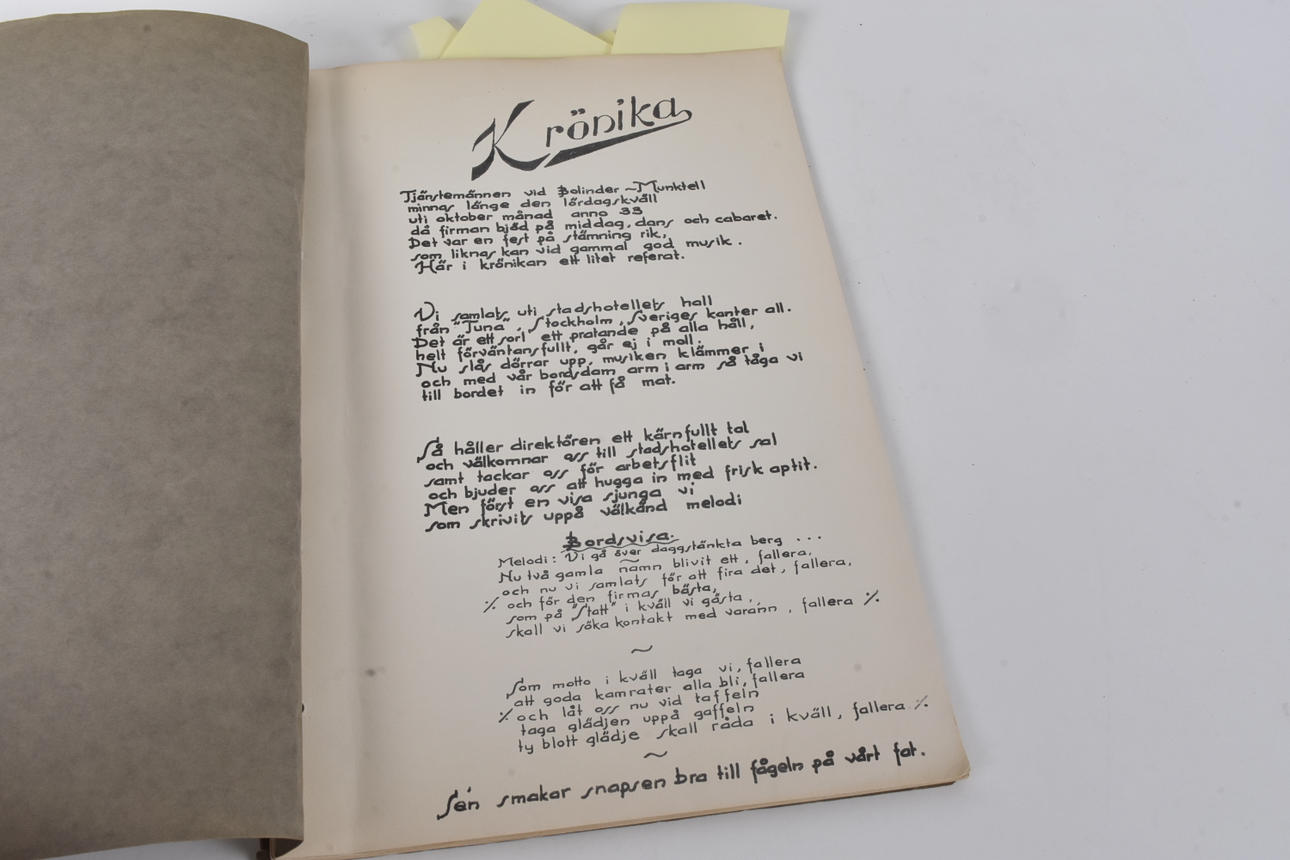 Krönika
Tjänstemännen vid Bolinder-Munktell
minnas länge den lördagskväll
uti oktober månad anno 33
då firman bjöd på middag, dans och cabaret.
Det var en fest på stämning rik,
som liknas kan vid gammal god musik.
Här i krönikan ett litet referat.
Vi samlats uti stadshotellets hall
från "Tuna", Stockholm, Sveriges kanter all.
Det är ett sorl ett pratande på alla håll,
helt förväntansfullt, går ej i moll.
Nu slås dörrar upp, musiken klämmer i
och med vår bordsdam arm i arm så tåga vi
till bordet in för att få mat.
Så håller direktören ett kärnfullt tal
och välkomnar oss till stadshotellets sal
samt tackar oss för arbetsflit
och bjuder oss att hugga in med frisk aptit.
Men först en visa sjunga vi
som skrivits uppå välkänd melodi
Bordsvisa.
Melodi: Vi gå över daggstänkta berg ...
Nu två gamla namn blivit ett, fallera,
och nu vi samlats för att fira det, fallera,
⁒ och för den firmas bästa,
som på "Statt" i kväll vi gästa,
skall vi söka kontakt med varann, fallera ⁒
~
Som motto i kväll taga vi, fallera
att goda kamrater alla bli, fallera
⁒ och låt oss nu vid taffeln
taga glädjen uppå gaffeln
ty blott glädje skall råda i kväll, fallera ⁒
~
Sen smakar snapsen bra till fågeln på vårt fat.